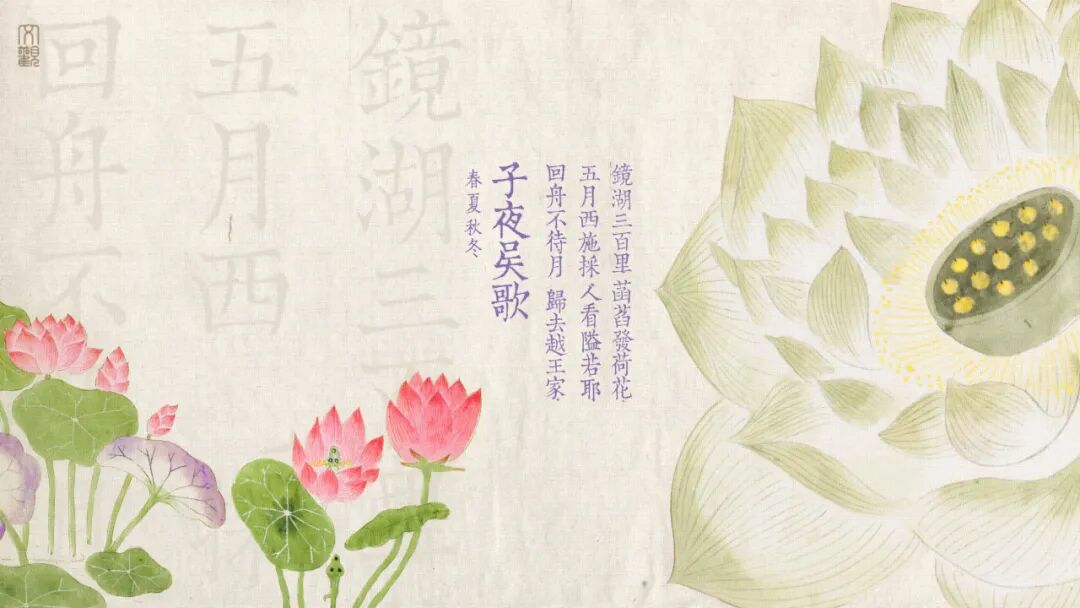 鏡湖三百里 菡萏發荷花
五月西施採 人看隘若耶
回舟不待月 歸去越王家
子夜吴歌
春夏秋冬
鏡湖三
五月西
回舟不